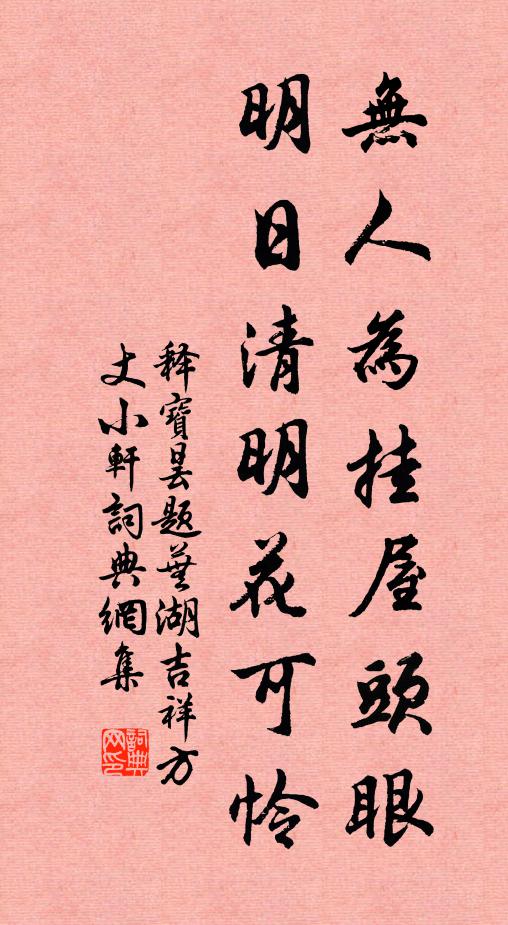 無人為挂屋頭眼
明日清明花可怜
释寶昙题蕪湖吉祥方
丈小軒詞典網集
詞典
网印